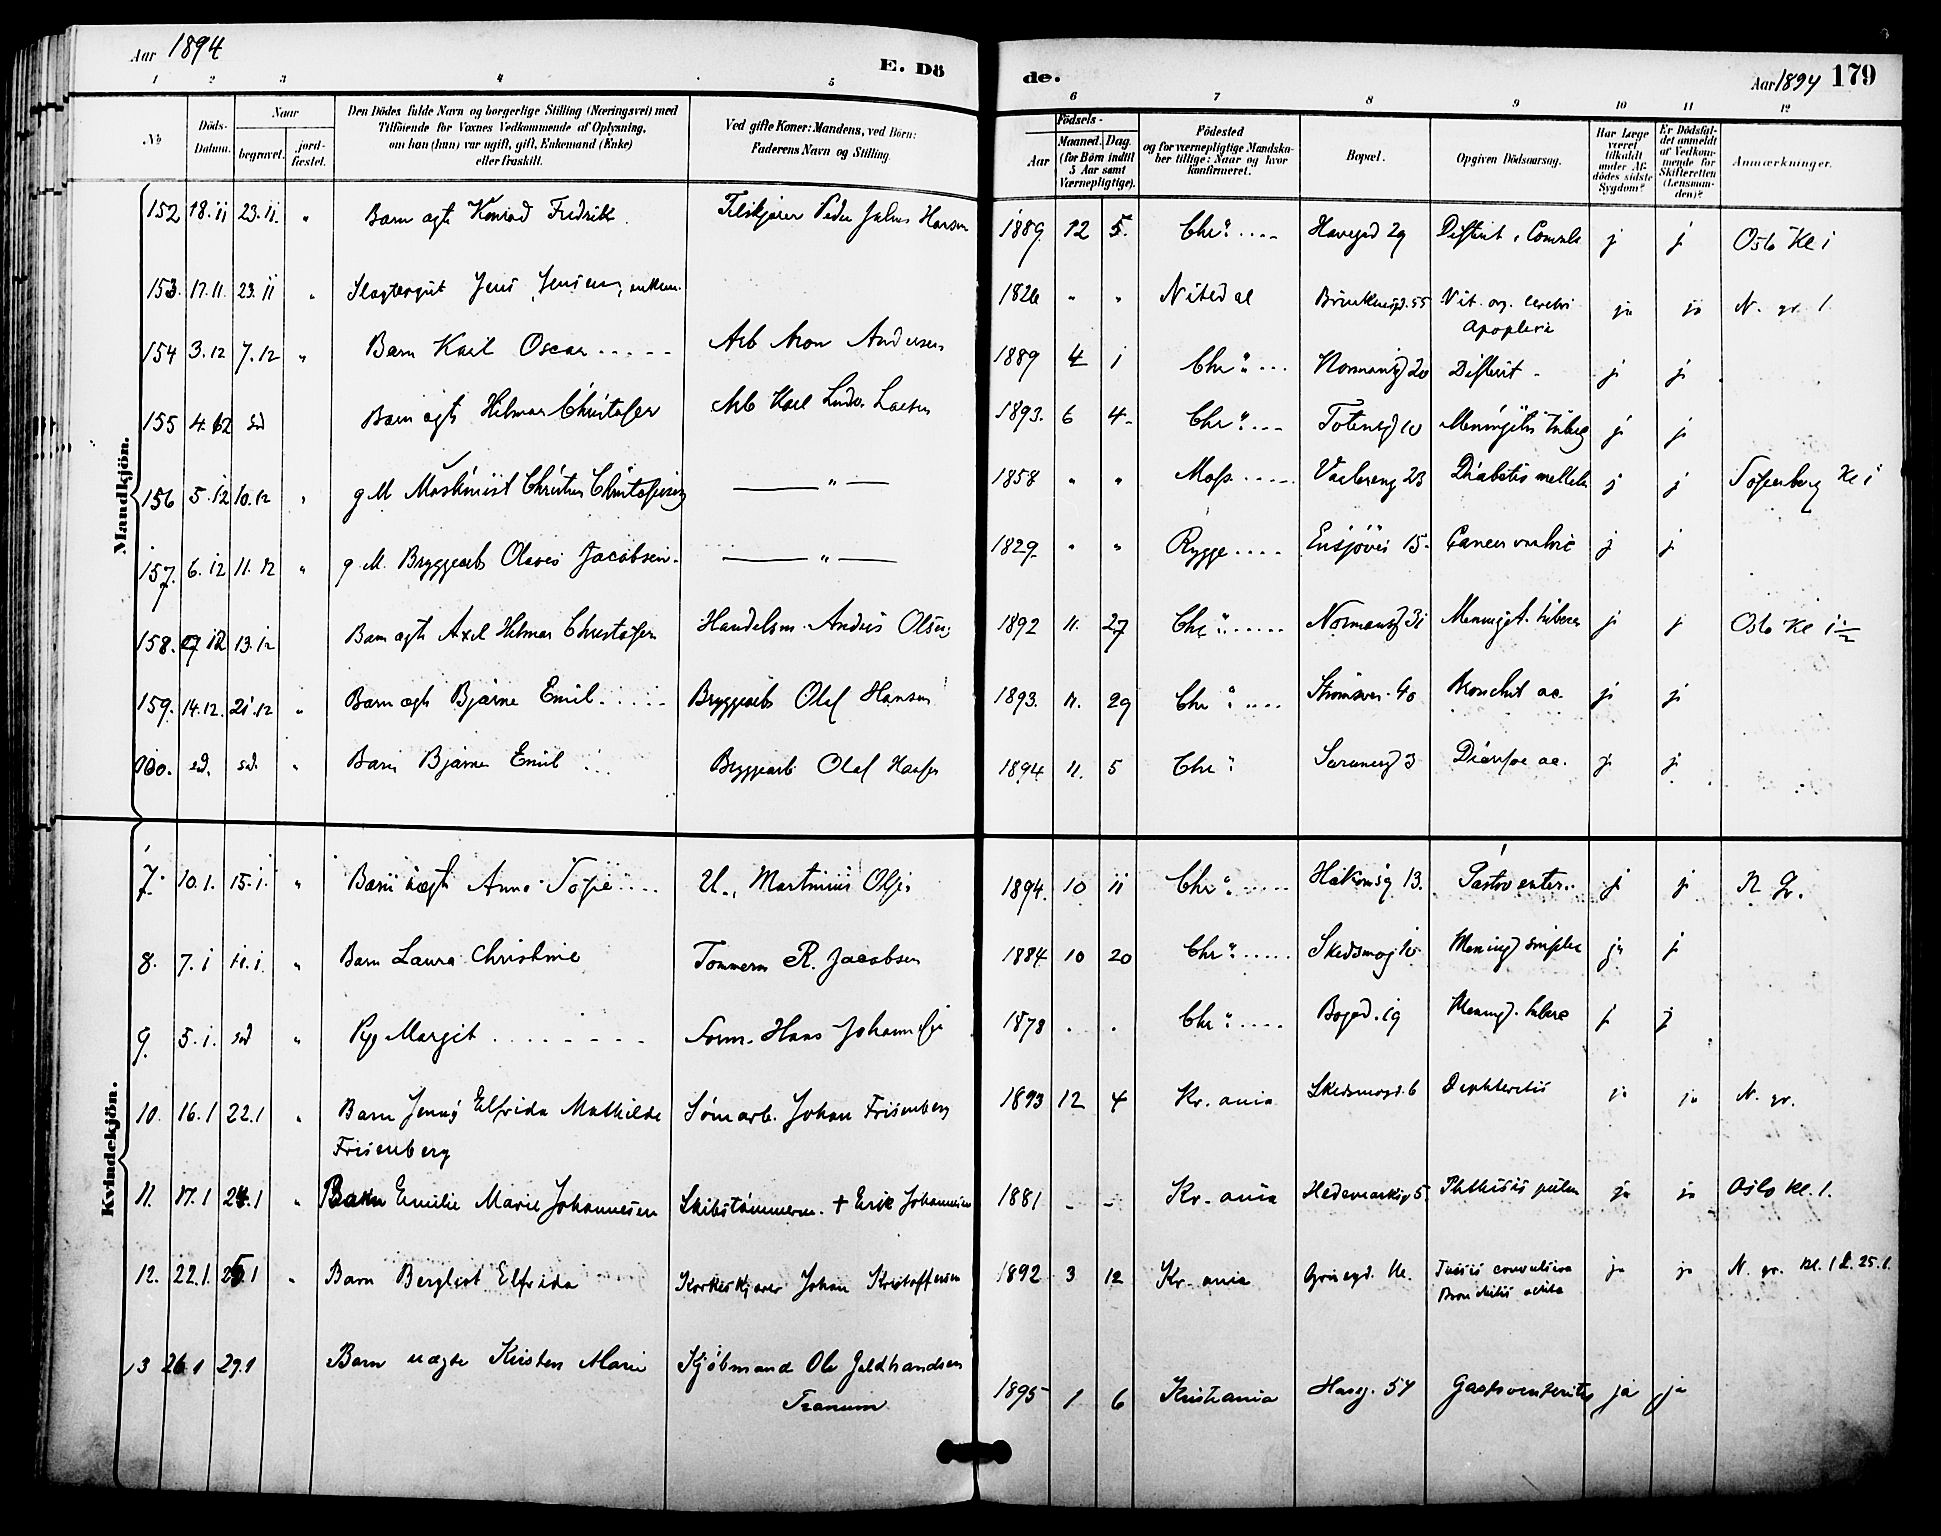 Aar 1894
E. Dö
de.
Aar 1894 179
1 2 3 4 5
6 7 8 9 10 11 12
No
Döds-
Datum.
Naar
begravet.
jord-
fæstet.
Den Dödes fulde Navn og borgerlige Stilling (Næringsvei) med
Tilföiende for Voxnes Vedkommende af Oplysning,
om han (hun) var ugift, gift, Enkemand (Enke)
eller fraskilt.
Ved gifte Koner: Mandens, ved Børn:
Faderens Navn og Stilling.
Födsels-
Aar
Maaned. Dag.
(for Børn indtil
5 Aar samt
Værnepligtige).
Födested
og for værnepligtige Mandska-
ber tillige: Naar og hvor
konfirmeret.
Bopæl.
Opgiven Dödsaarsag.
Har Læge
været
tilkaldt
under Af-
dödes sidste
Sygdom?
Er Dödsfal-
det anmeldt
af Vedkom-
mende for
Skifteretten
(Lensman-
den)?
Anmærkninger.
Mandkjön.
152 18.11 23.11 " Barn ægte Konrad Fredrik Peder Julius Hansen 1889 12 5. Chr.a .... 29 Difterit j j Oslo Kl 1
153. 17.11. 23.11 " Jens Jensen, enkem. 1826 " " Nitedal 55 Vit. og. cerebri j j N. gr. 1.
Apoplexia
154 3.12 7.12 " Barn Karl Oscar ..... Arb Aron Andersen 1889 4 1 Chr.a ... 20 Difterit - j j
155 4.12 sd Barn ægte Hilmar Christofer Arb Karl Larsen 1893. 6 4. Chr.a ... Totensg 10 Meningitis tuberc j j
156 5.12 10.12 " g M Maskinist Christian Christophersen — " — 1858 " " Moss ..... Vaalereng 23 Diabetes mellitus j j Kl 1
157. 6.12 11.12 " g. M. Bryggearb Olaves Jacobsen. — " — 1829. " " Rygge .... Ensjøvei 15. Cancer j j
158. 13.12 Barn ægte Axel Hilmar Christofer Handelsm. Anders Olsen 1892 11. 27 Chr.a ...... Normansg 31 Meningit. tuberc j j Oslo Kl 1
159. 14.12. 21.12 " Barn ægte Bjarne Emil ..... Bryggearb Olaf Hansen 1893. 11. 29 Chr.a .... Strømsvei. 40 Bronchit ac. j j
160. sd. sd. " Barn Bjarne Emil ... Bryggearb Olaf Hansen 1894 11. 5 Chr.a 3 Diarrhoe ac. j j
Kvindekjön.
7. 10.1. 15.1. " Barn uægte Anna Sofie .... U. Martinius Olsen 1894. 10 11 Chr.a ..... Håkonsg 13. Gastroenter.. j j N Gr.
8. 7.1 11.1. " Barn Laura Christine Tømmerm R. Jacobsen 1884 10 20 Chr.a ..... Skedsmog 10 Mening simplex ja j
9. 5.1. sd " Pige Margit ........ Hans Johannesen 1878 . . Chr.a .... Bogad. 19 Mening. tuberc j j
10. 16.1 22.1 " Barn Jenny Elfrida Mathilde Sømarb. Johan Frisenberg 1893 12 4 Kr.ania Skedsmogd. 6 Diphteritis ja ja N. gr.
Frisenberg
11. 17.1 24.1 " Barn Emilie Marie Johannesen Skibstømmerm. + Erik Johannesen 1881 - - Kr.ania Hedemarksg 5. Phthisis pulm ja ja Oslo kl. 1.
12. 22.1. 25.1 " Barn Bergliot Elfrida Korkeskjærer Johan Kristoffersen 1892 3 12 Kr.ania Tussis convulsiva ja ja N. gr. kl. 1 d. 25.1.
Bronchitis acuta
13 26.1 29.1 Barn uægte Kirsten Marie Kjøbmand Ole
Tranum 1895 1 6 Kristiania Hasg. 54 Gastroenteritis ja ja